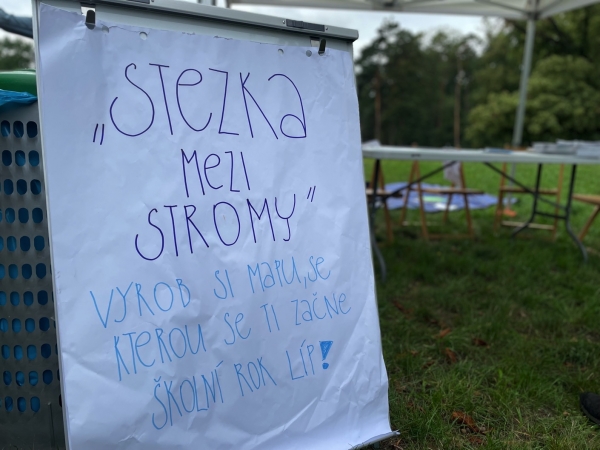 „STEZKA
MEZI
STROMY"
VYROB SI MAPU, SE
KTEROU SE TI ZAČNE
ŠKOLNÍ ROK LÍP!